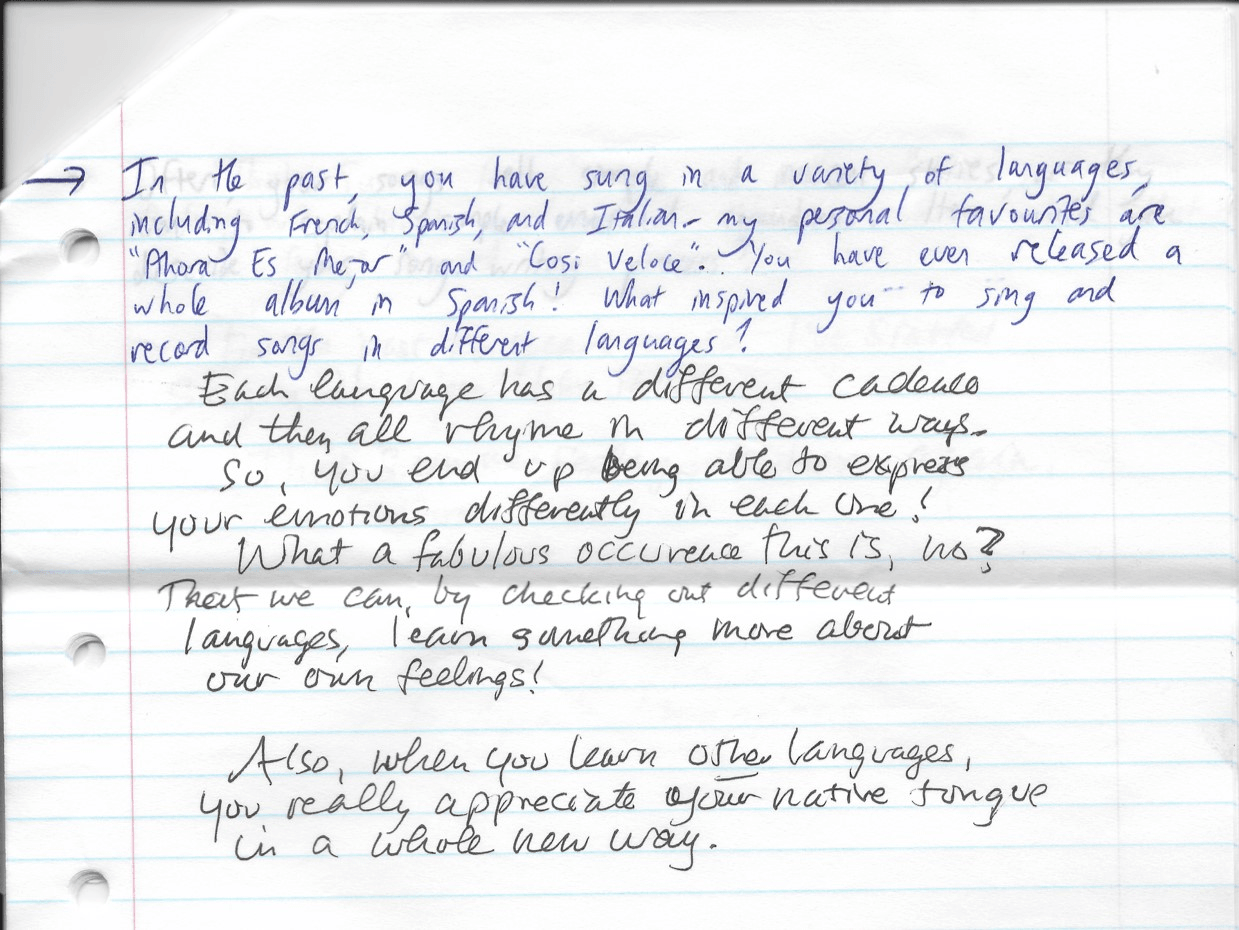 → In the past, you have sung in a variety of languages,
including French, Spanish, and Italian - my personal favourites are
"Ahora Es Mejor" and "Cosi Veloce". You have even released a
whole album in Spanish! What inspired you to sing and
record songs in different languages?
Each language has a different cadence
and they all rhyme in different ways.
So, you end up being able to express
your emotions differently in each one!
What a fabulous occurence this is, no?
That we can, by checking out different
languages, learn something more about
our own feelings!
Also, when you learn other languages,
you really appreciate your native tongue
in a whole new way.